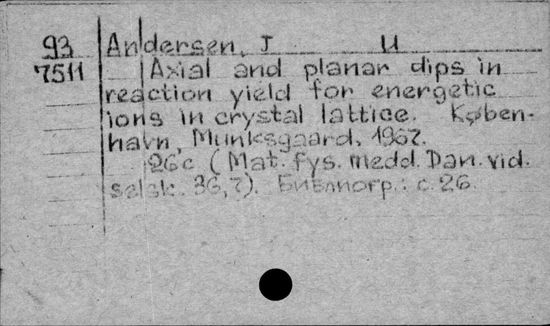 93 Andersen, J U
7511 Axial and planar dips in
reaction yield for energetic
ions in crystal lattice. Køben-
havn, Munksgaard, 1967.
26c (Mat. fys. medd. Dan. vid.
selsk. 36,7). Библиогр.: с. 26.